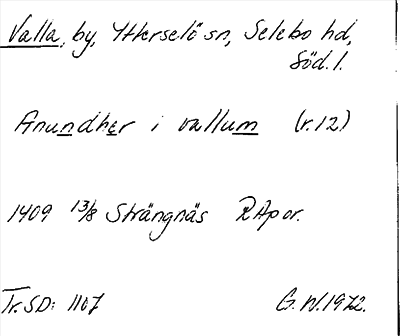 Valla, by, Ytterselö sn, Selebo hd,
Söd. l.
Anundher i vallum (r. 12)
1409 13/8 Strängnäs RAp or.
Tr. SD: 1107 G. W. 1972.